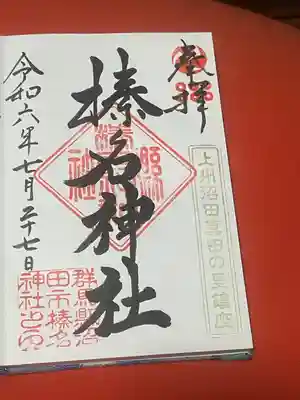 奉拝
上州沼田真田の里鎮座
榛名神社
令和六年七月二十七日
群馬県沼
田市榛名
神社之印